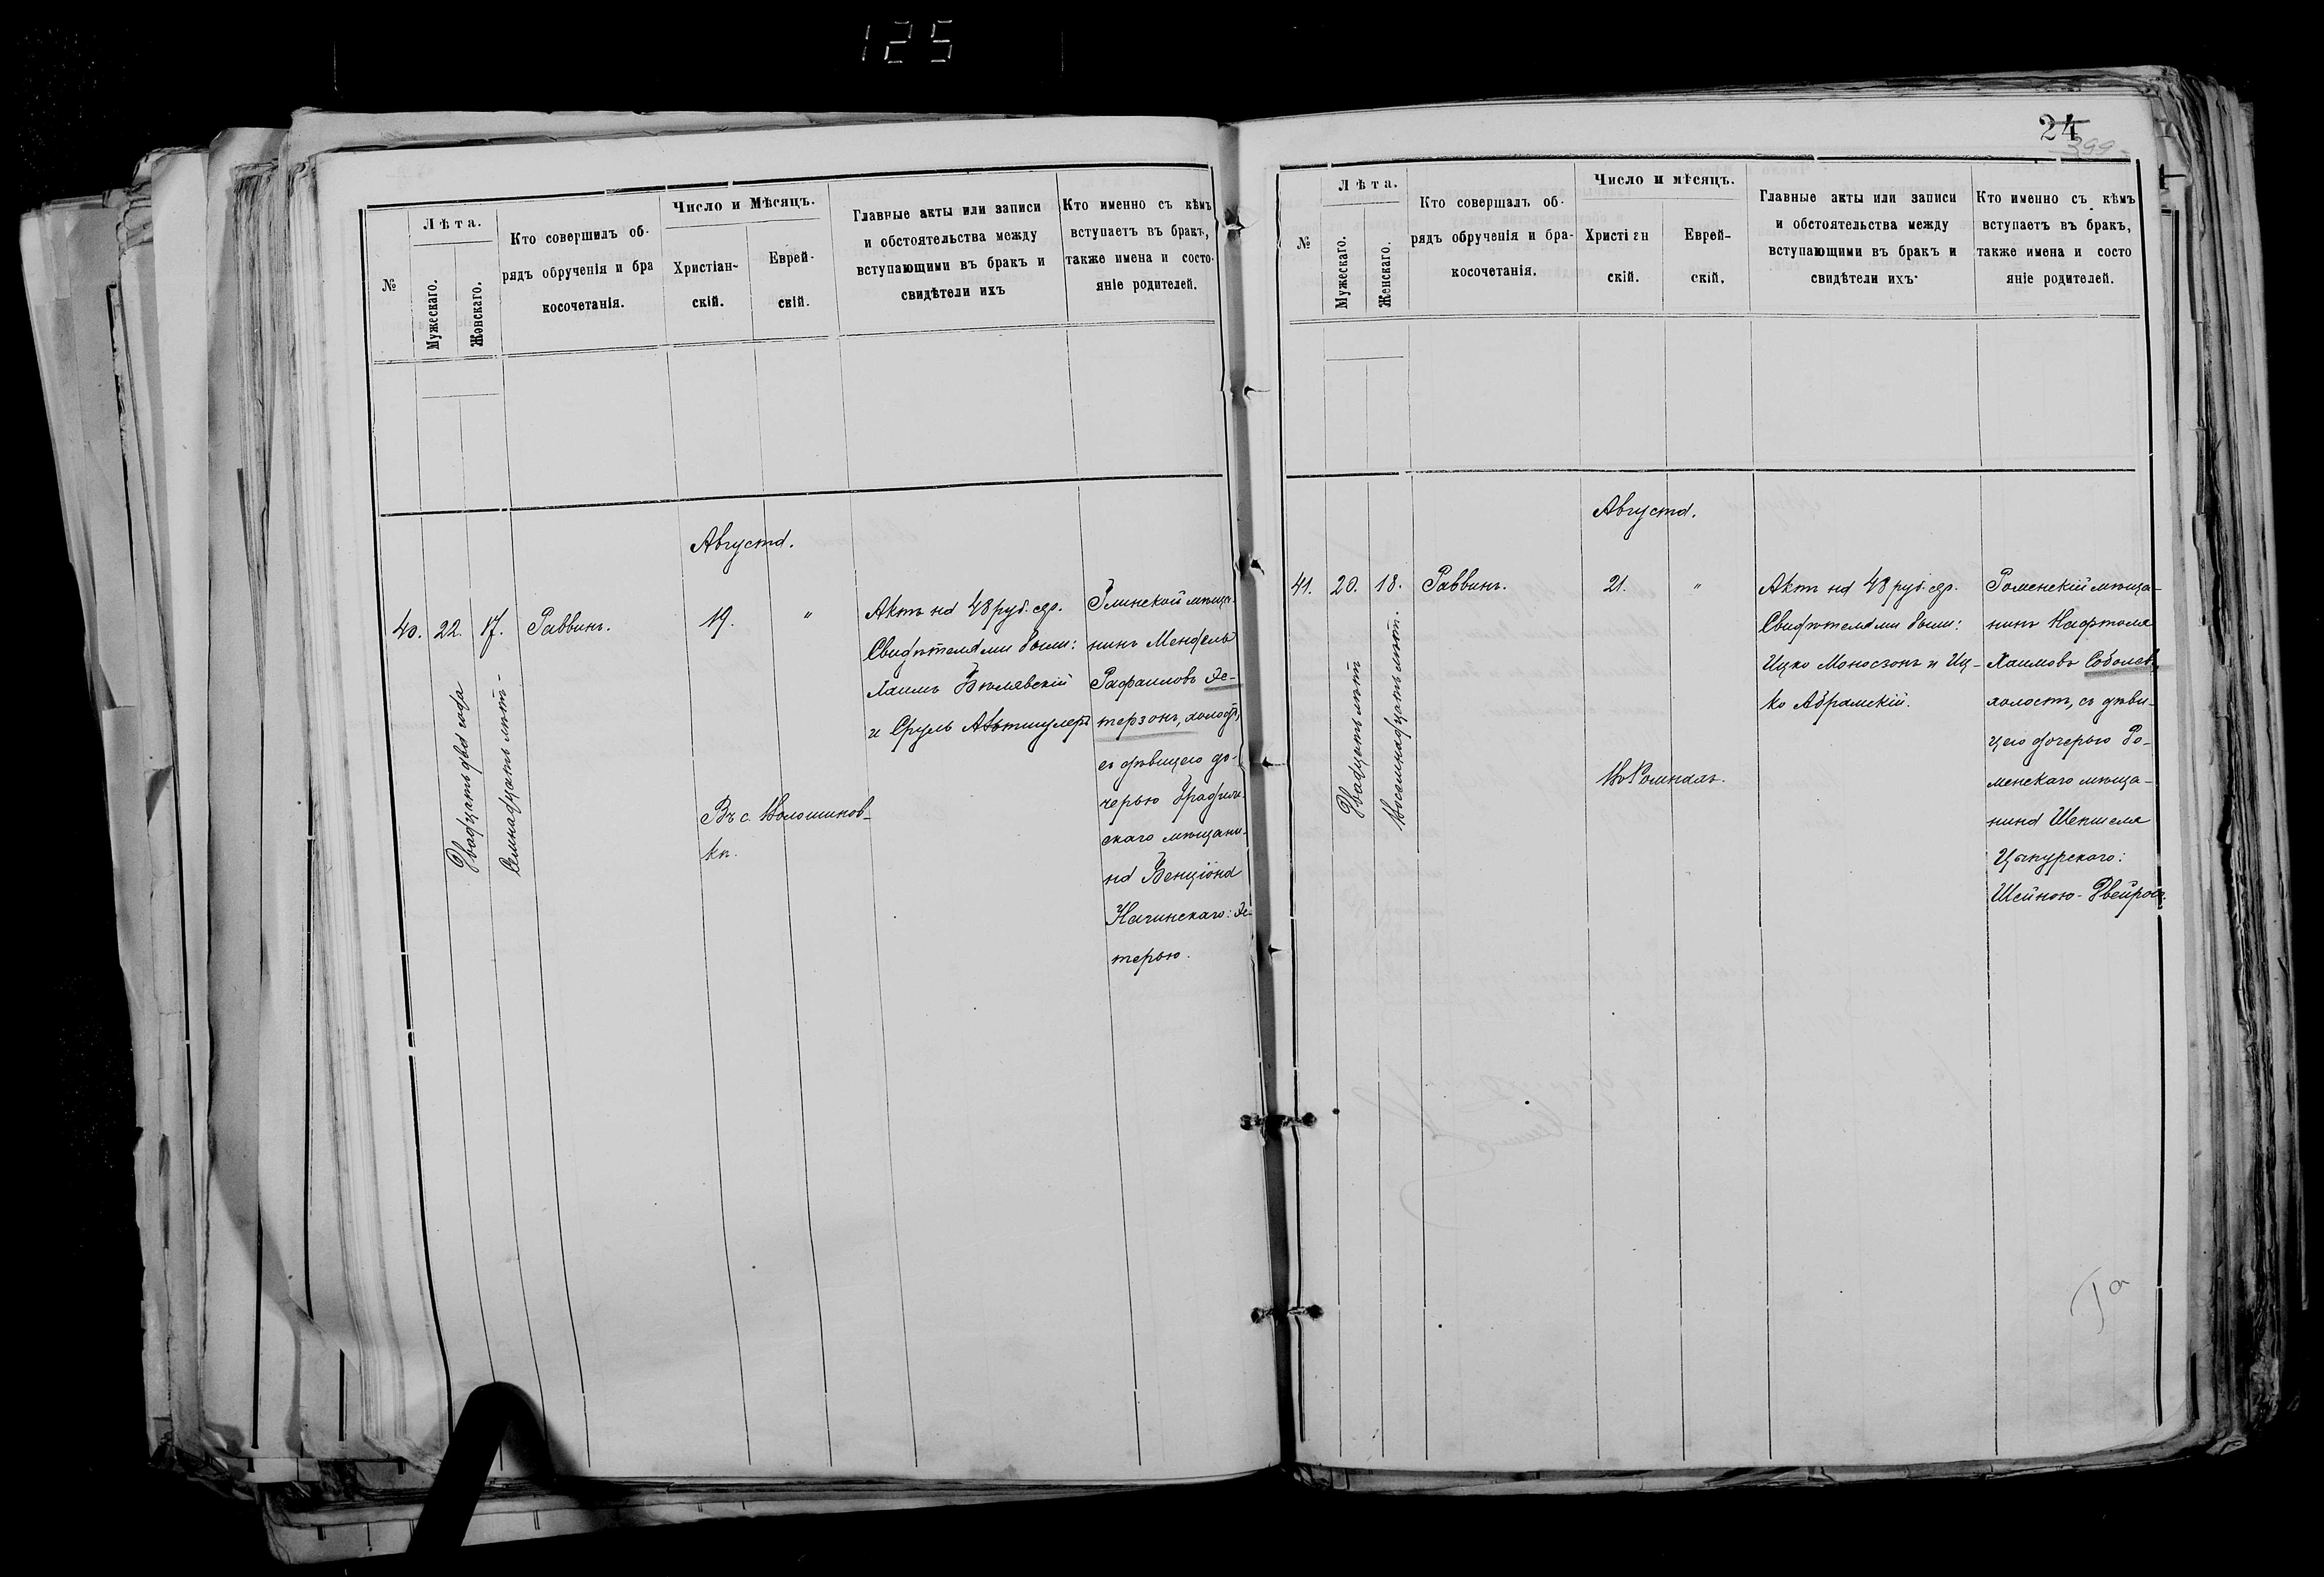 125
№
Лѣта.
Мужескаго.
Женскаго.
Кто совершилъ об-
рядъ обрученія и бра
косочетанія.
Число и Мѣсяцъ.
Христіан-
скій.
Еврей-
скій.
Главные акты или записи
и обстоятельства между
вступающими въ бракъ и
свидѣтели ихъ
Кто именно съ кѣмъ
вступаетъ въ бракъ,
также имена и состо-
яніе родителей.
Августа.
40.
22.
Двадцать два года
17.
Семнадцать лѣтъ
Раввинъ.
19.
"
Въ с. Волошинов-
кѣ.
Актъ на 48 руб. сер.
Свидѣтелями были:
Хаимъ Бѣлявскій
и Сруль Альтшулеръ
Глинскій мѣща-
нинъ Мендель
Рафаиловъ Де-
терзонъ, холостъ,
съ дѣвицею до-
черью
скаго мѣщани-
на Бенціона
Качинскаго:
терью.
24
399
№
Лѣта.
Мужескаго.
Женскаго.
Кто совершалъ об-
рядъ обрученія и бра-
косочетанія.
Число и мѣсяцъ.
Христіан
скій.
Еврей-
скій.
Главные акты или записи
и обстоятельства между
вступающими въ бракъ и
свидѣтели ихъ
Кто именно съ кѣмъ
вступаетъ въ бракъ,
также имена и состо
яніе родителей.
Августа.
41.
20.
Двадцать лѣтъ
18.
Восемнадцать лѣтъ.
Раввинъ.
21.
"
Въ Ромнахъ.
Актъ на 48 руб. сер.
Свидѣтелями были:
Ицко Моносзонъ и Иц-
ко Абрамскій.
Роменскій мѣща-
нинъ Нафтоля
Хаимовъ Соболевъ,
холостъ, съ дѣви-
цею дочерью Ро-
менскаго мѣща-
нина Шепшеля
Цыпурскаго:
Шейною-Двейрою.